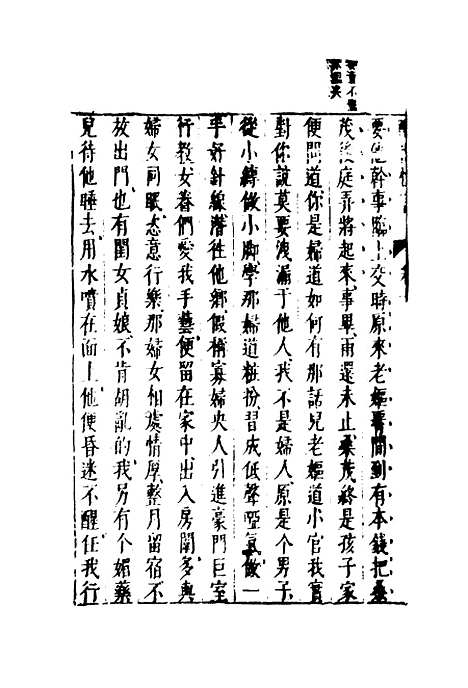 要他幹事臨上交時原來老嫗腰間到有本錢把桑
茂後庭弄將起來事畢雨還未止桑茂終是孩子家
便問道你是婦道如何有那話兒老嫗道小官我實
對你說莫要洩漏于他人我不是婦人原是个男子
從小縛做小脚學那婦道粧扮習成低聲啞氣做一
手好針線潛往他鄉假稱寡婦央人引進豪門巨室
行教女眷們愛我手藝便留在家中出入房闈多與
婦女同眠恣意行樂那婦女相處情厚整月留宿不
放出門也有閨女貞娘不肯胡亂的我另有個媚藥
兒待他睡去用水噴在面上他便昏迷不醒任我行